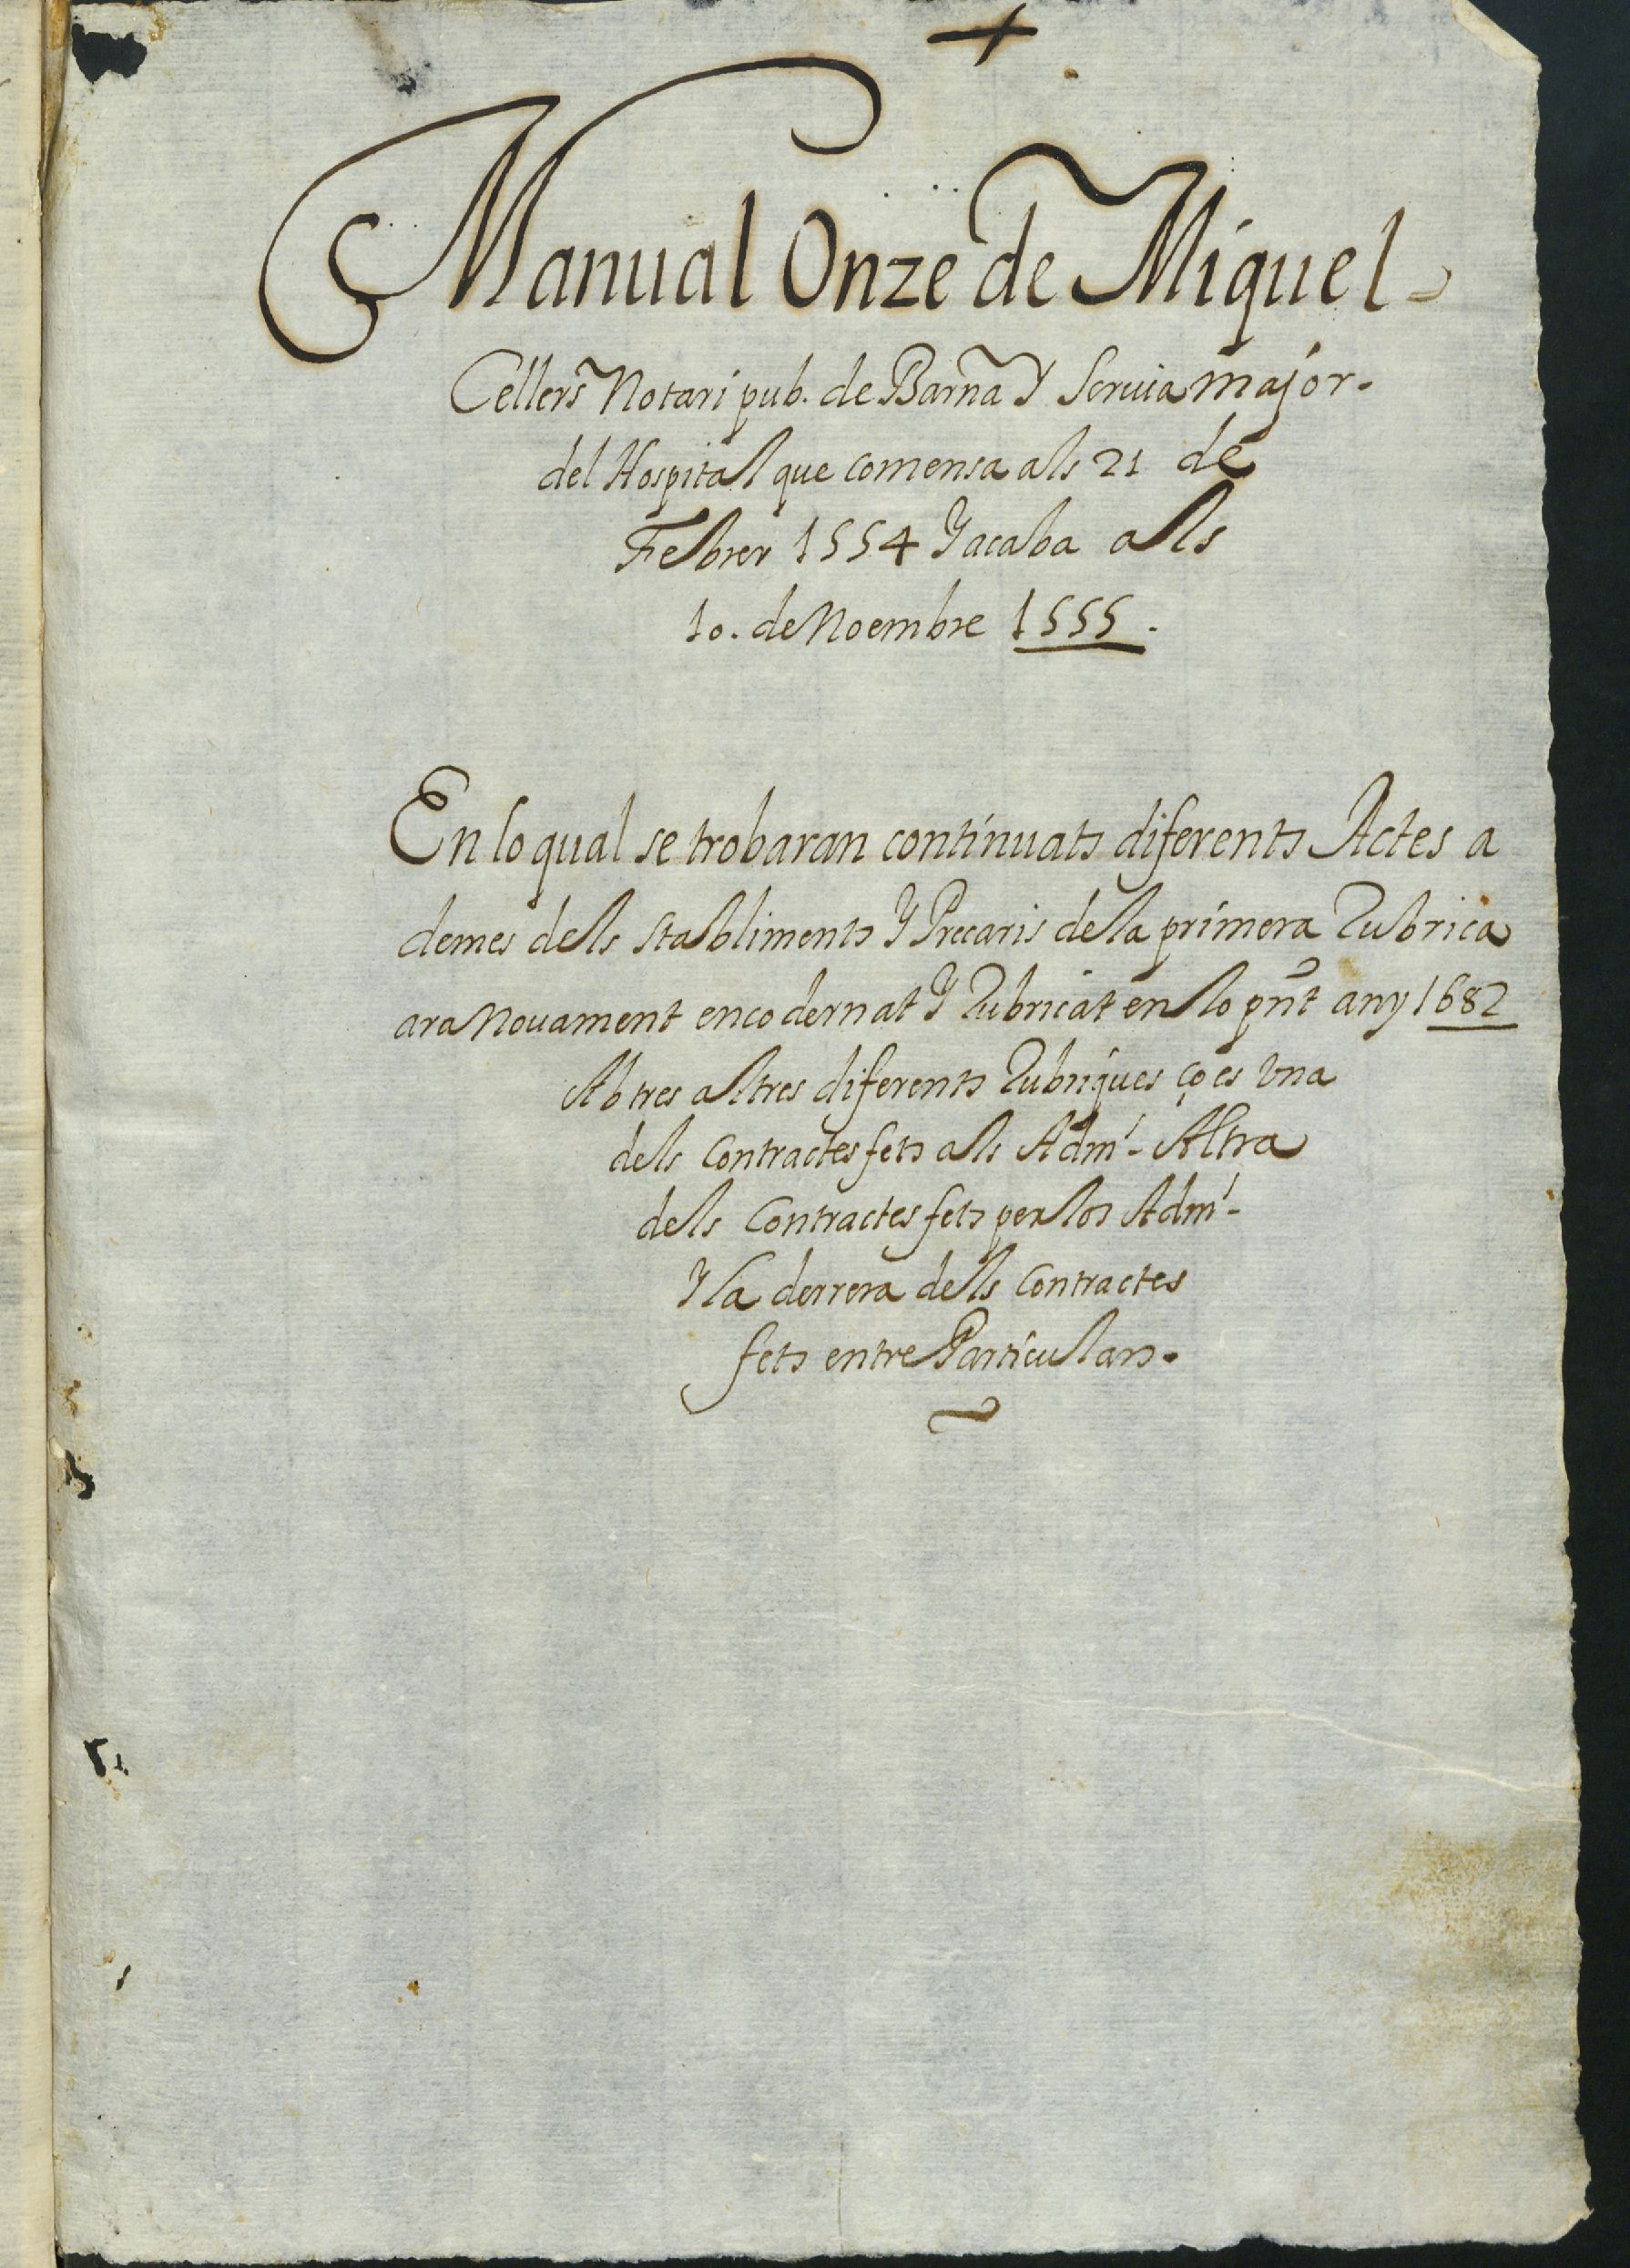 +
Manual Onze de Miquel
Cellers Notari pub. de Barña Y Scriuia major.
del Hospital que comensa als 21 de
Febrer 1554 Y acaba als
10. de Noembre 1555.
En lo qual se trobaran continuats diferents Actes a
demes dels stabliments Y Precaris de la primera Rubrica
ara Nouament encodernat Y Rubricat en lo pñt any 1682
Ab tres altres diferents Rubriques ço es Vna
dels Contractes fets als Adm̃. Altra
dels Contractes fets per los Adm̃.
Y la derrera dels Contractes
fets entre Particulars.